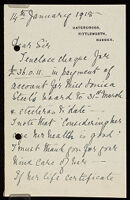 14th January 1918
HATCHORNE,
FITTLEWORTH,
SUSSEX.
Dear Sir
I enclose cheque for
£36.0.11. in payment of
account for Miss
board to 31st March
& etceteras to date—
I note that
her health is good.
I must thank you for your
kind care of her—
If her life certificate